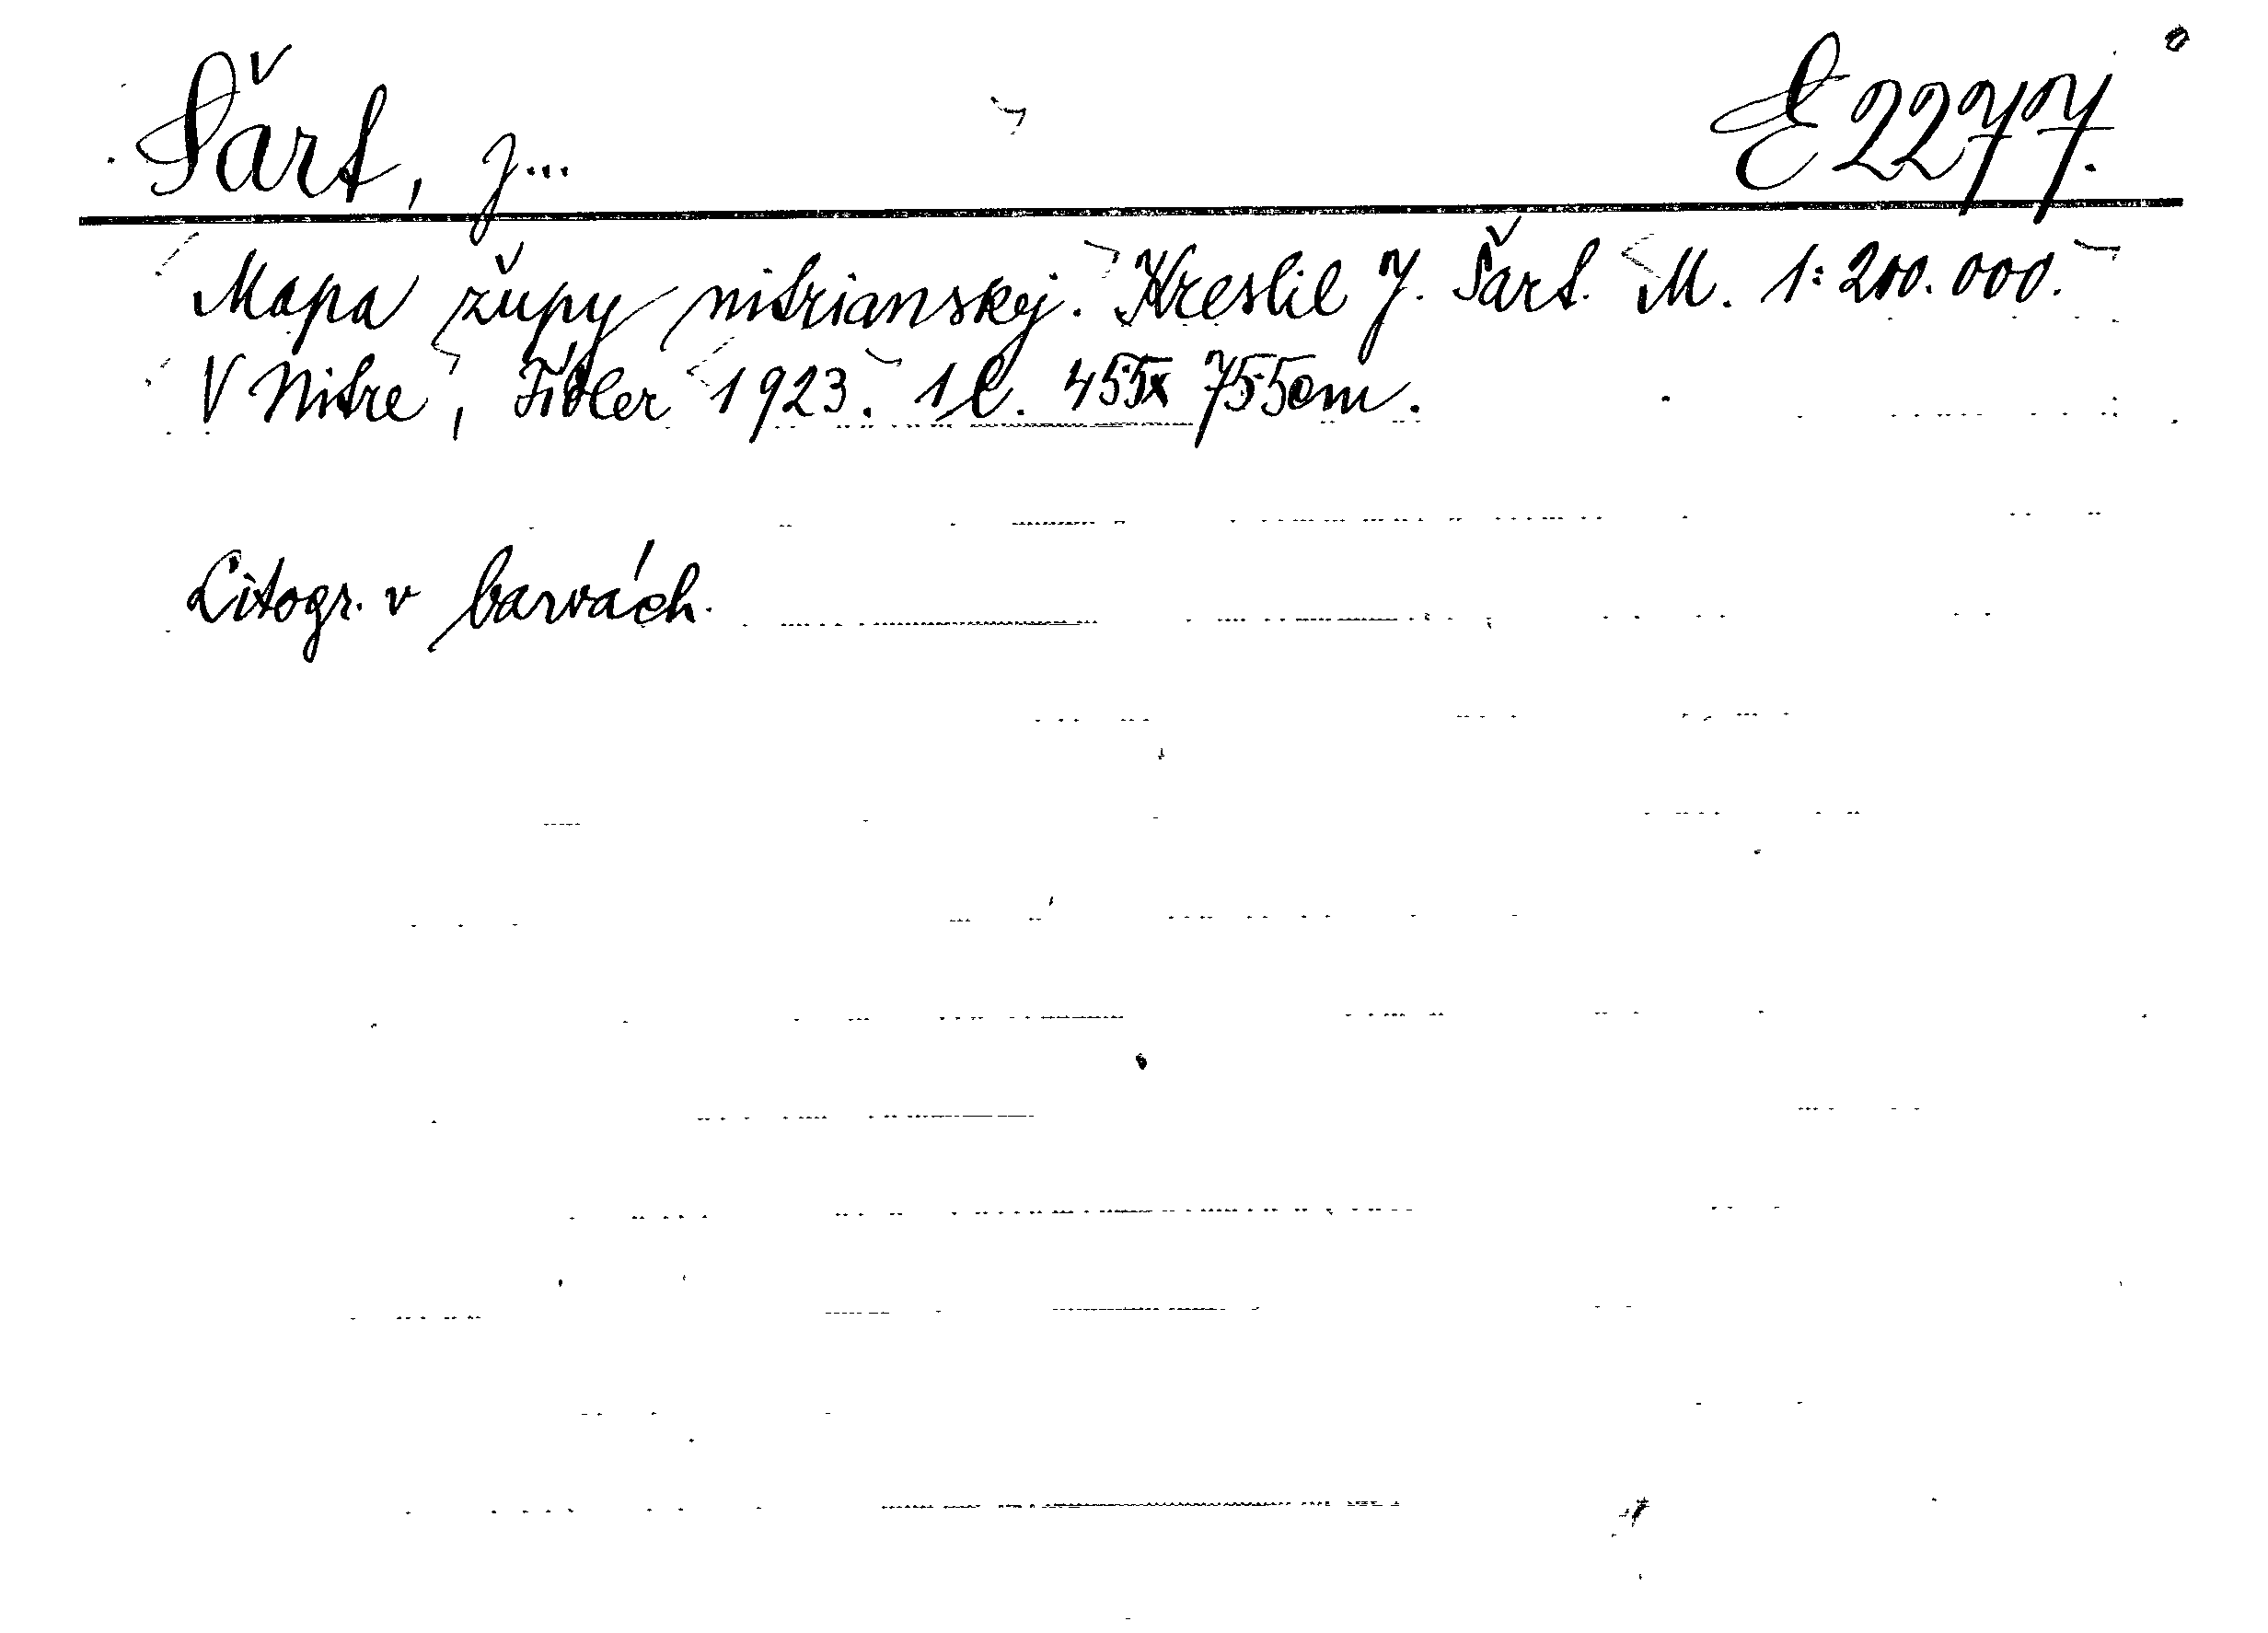 Šárt, J... E 2277.
Mapa župy nitrianskej. Kreslil J. Šárt. M. 1:200.000.
V Nitre, Fidler 1923. 1 l. 45·5x 75·5cm.
Litogr. v barvách.